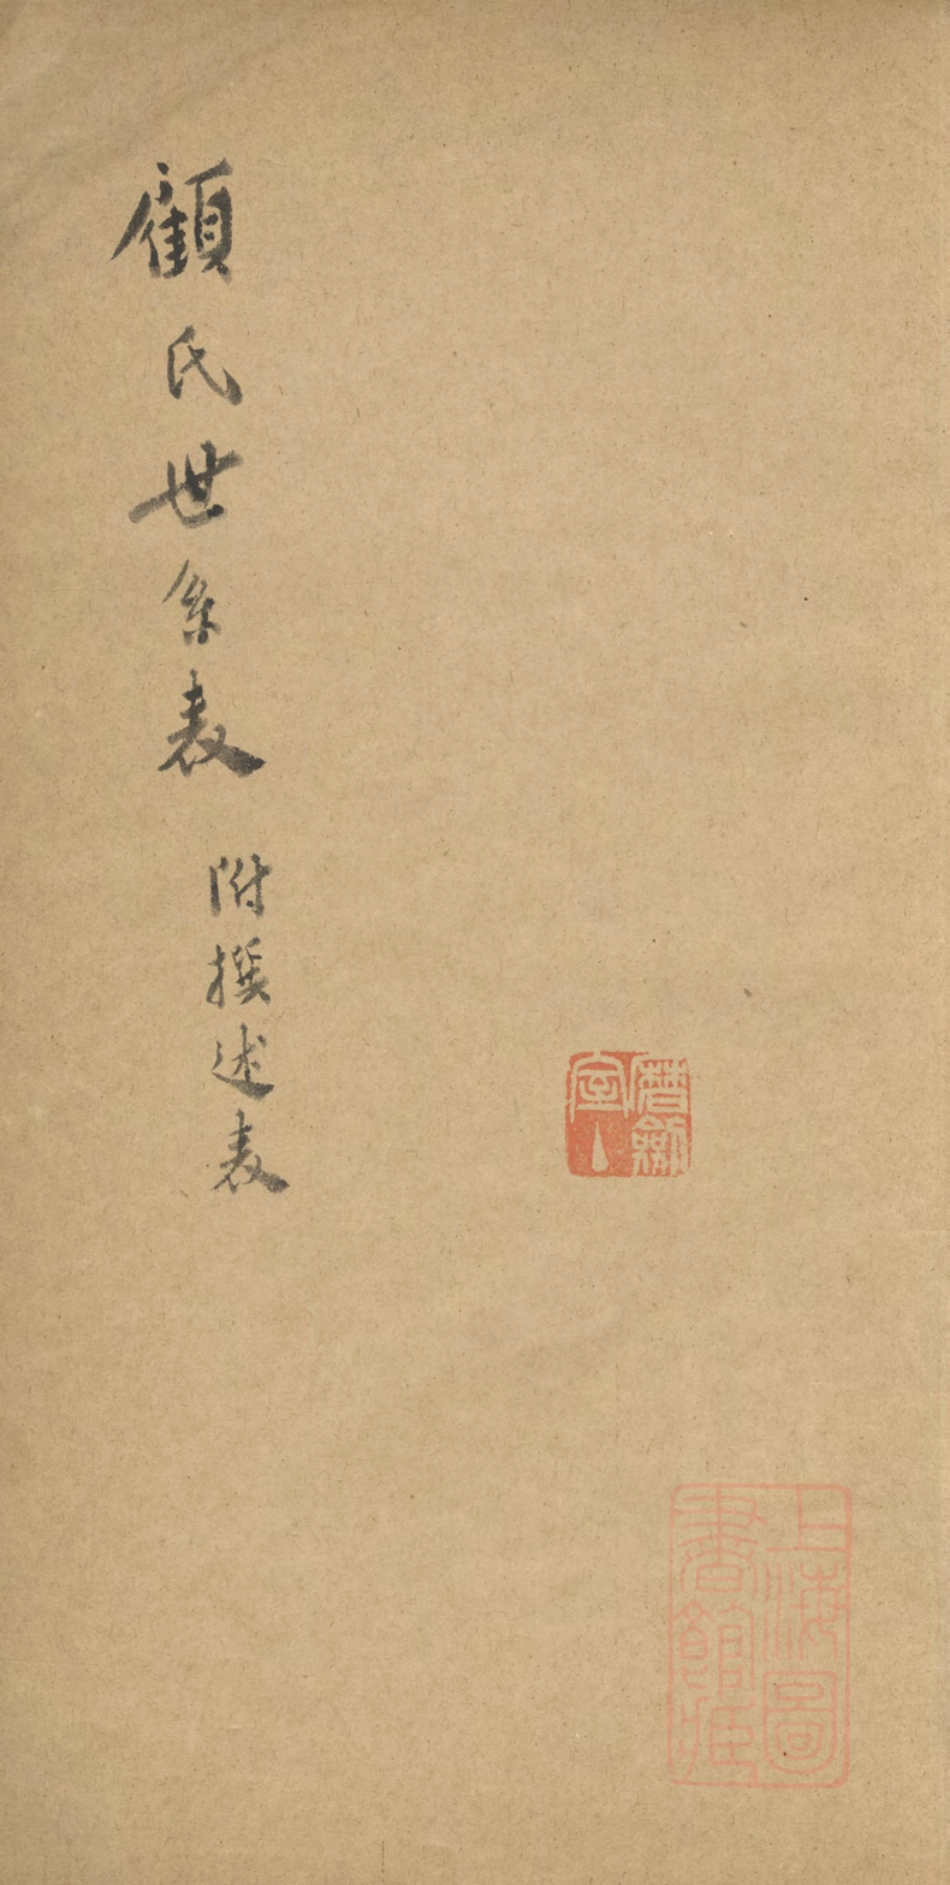 顧氏世系表
附撰述表
上海圖
書館藏